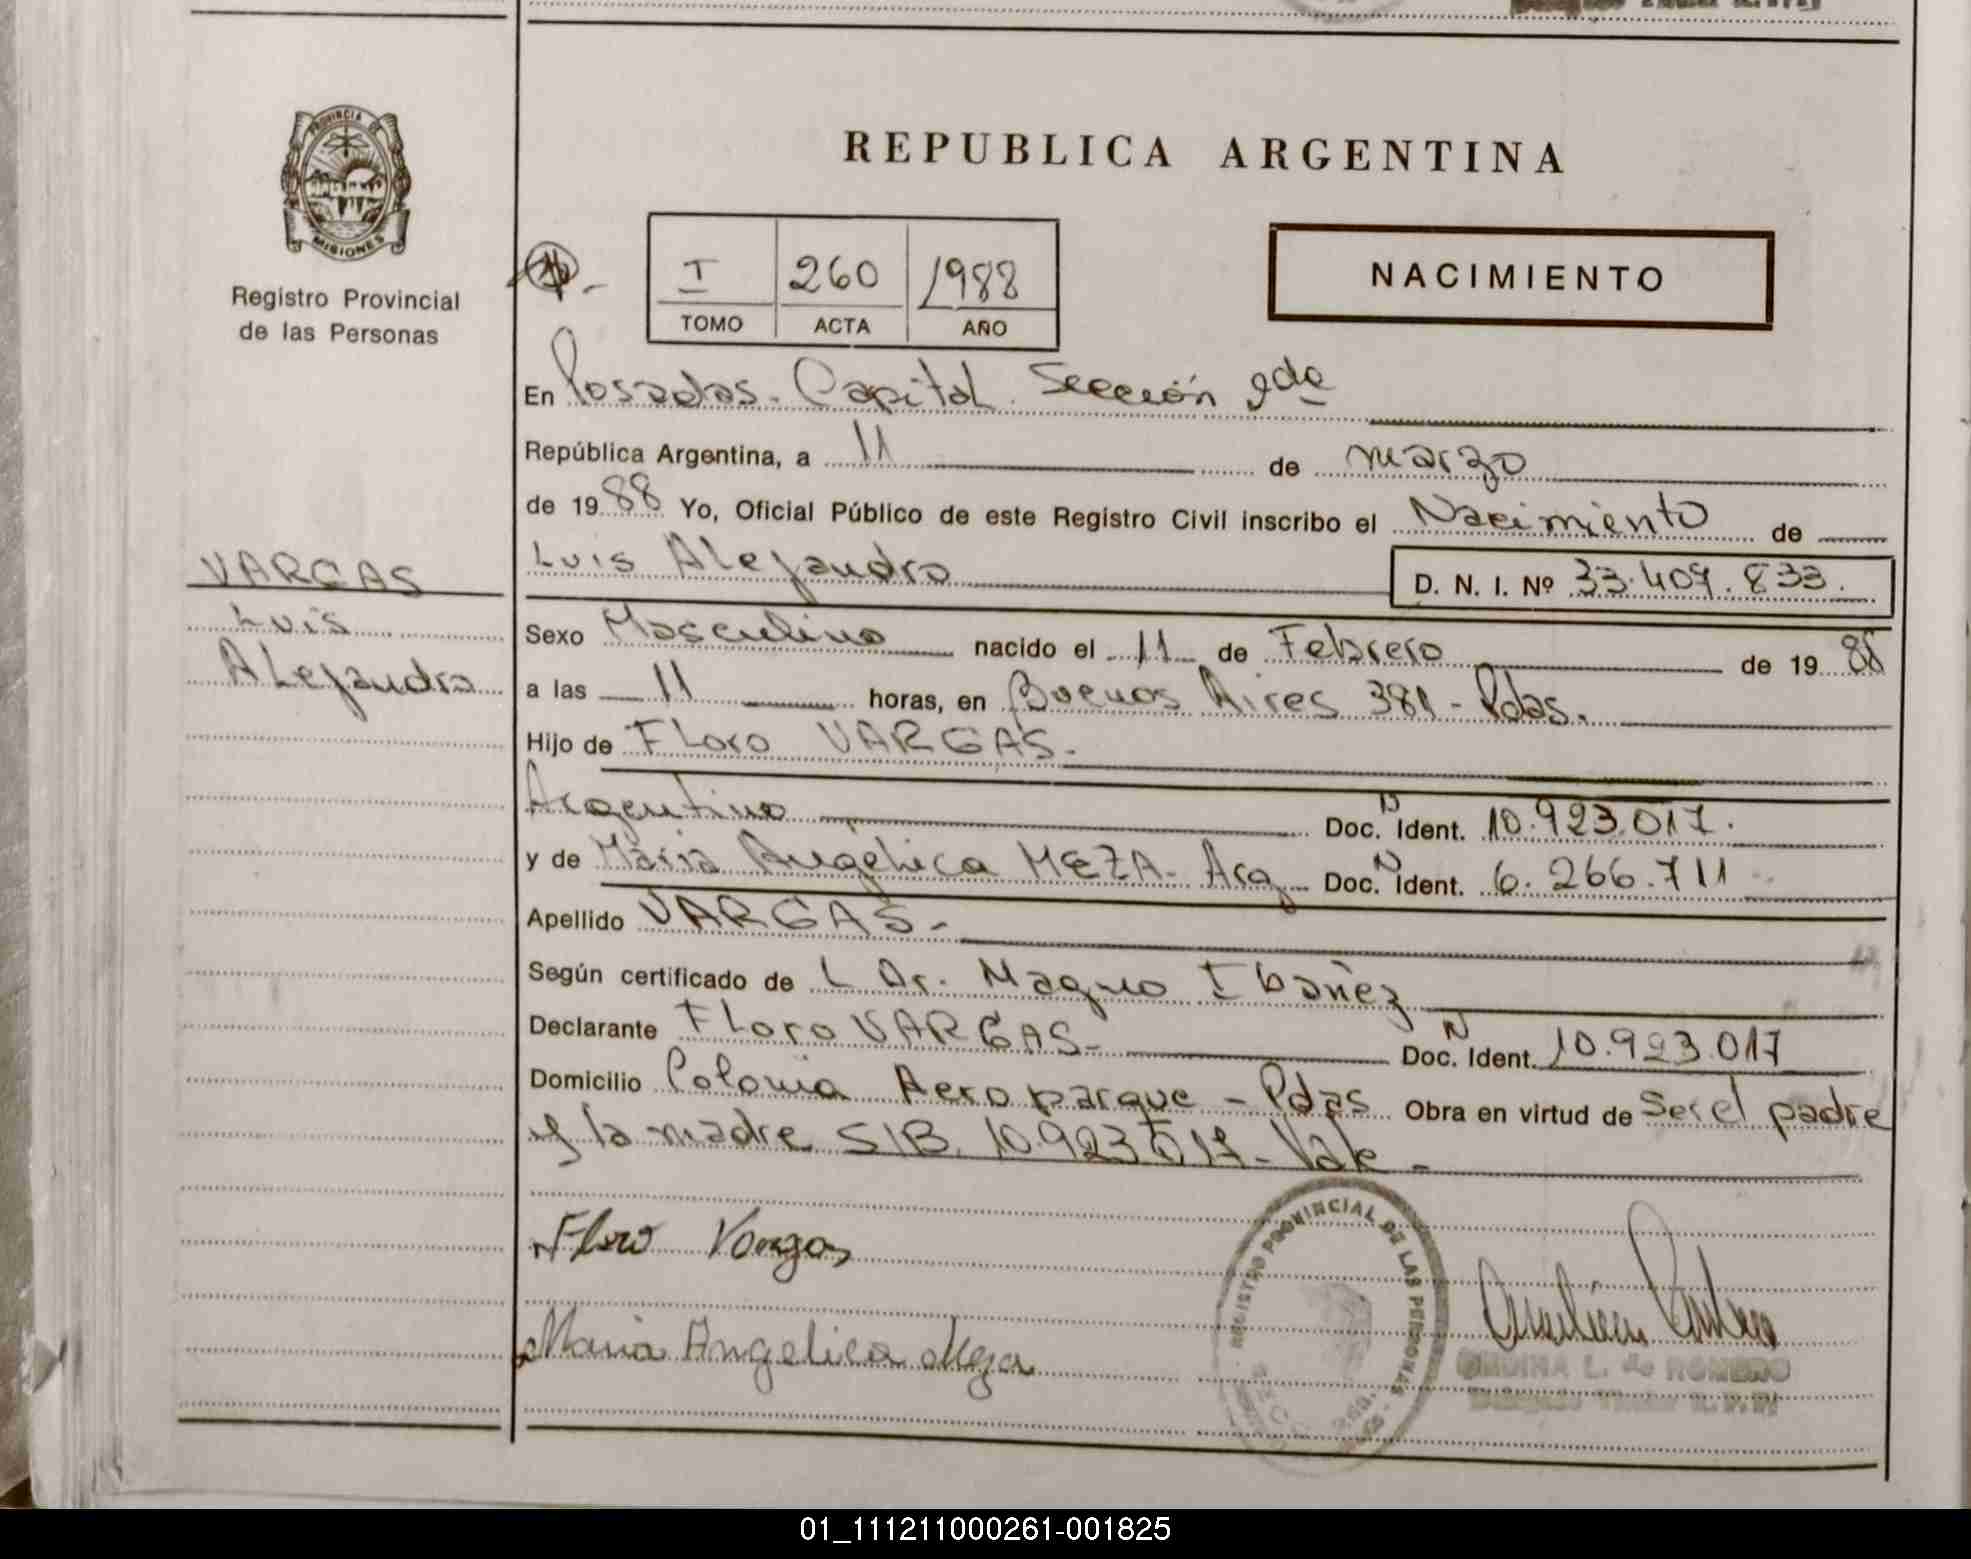 PROVINCIA DE
MISIONES
Registro Provincial
de las Personas
REPUBLICA ARGENTINA
I 260 1988
TOMO ACTA AÑO
NACIMIENTO
En Posadas - Capital. Sección 2da
República Argentina, a 11 de marzo
de 1988 Yo, Oficial Público de este Registro Civil inscribo el Nacimiento de
VARGAS
Luis
Alejandro
Luis Alejandro D. N. I. Nº 33.409.833.
Sexo Masculino nacido el 11 de Febrero de 1988
a las 11 horas, en Buenos Aires 381 - Pdas.
Hijo de Floro VARGAS.
Argentino Doc. N Ident. 10.923.017.
y de María Angélica MEZA - Arg Doc. N Ident. 6.266.711
Apellido VARGAS -
Según certificado de L Dr. Magno Ibañez
Declarante Floro VARGAS - Doc. N Ident. 10.923.017
Domicilio Colonia Aeroparque - Pdas Obra en virtud de Ser el padre
y la madre S/B. 10.923.017 - Vale -
Floro Vargas
Maria Angelica Meza
REGISTRO PROVINCIAL DE LAS PERSONAS
L. de ROMERO
01_111211000261-001825